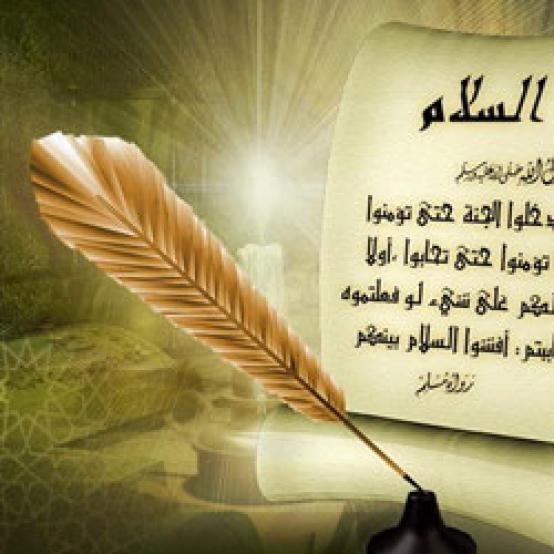 السلام
صلى الله عليه وسلم
الجنة حتى تؤمنوا
تؤمنوا حتى تحابوا ،أولا
على شيء لو فعلتموه
أفشوا السلام بينكم
رواه مسلم